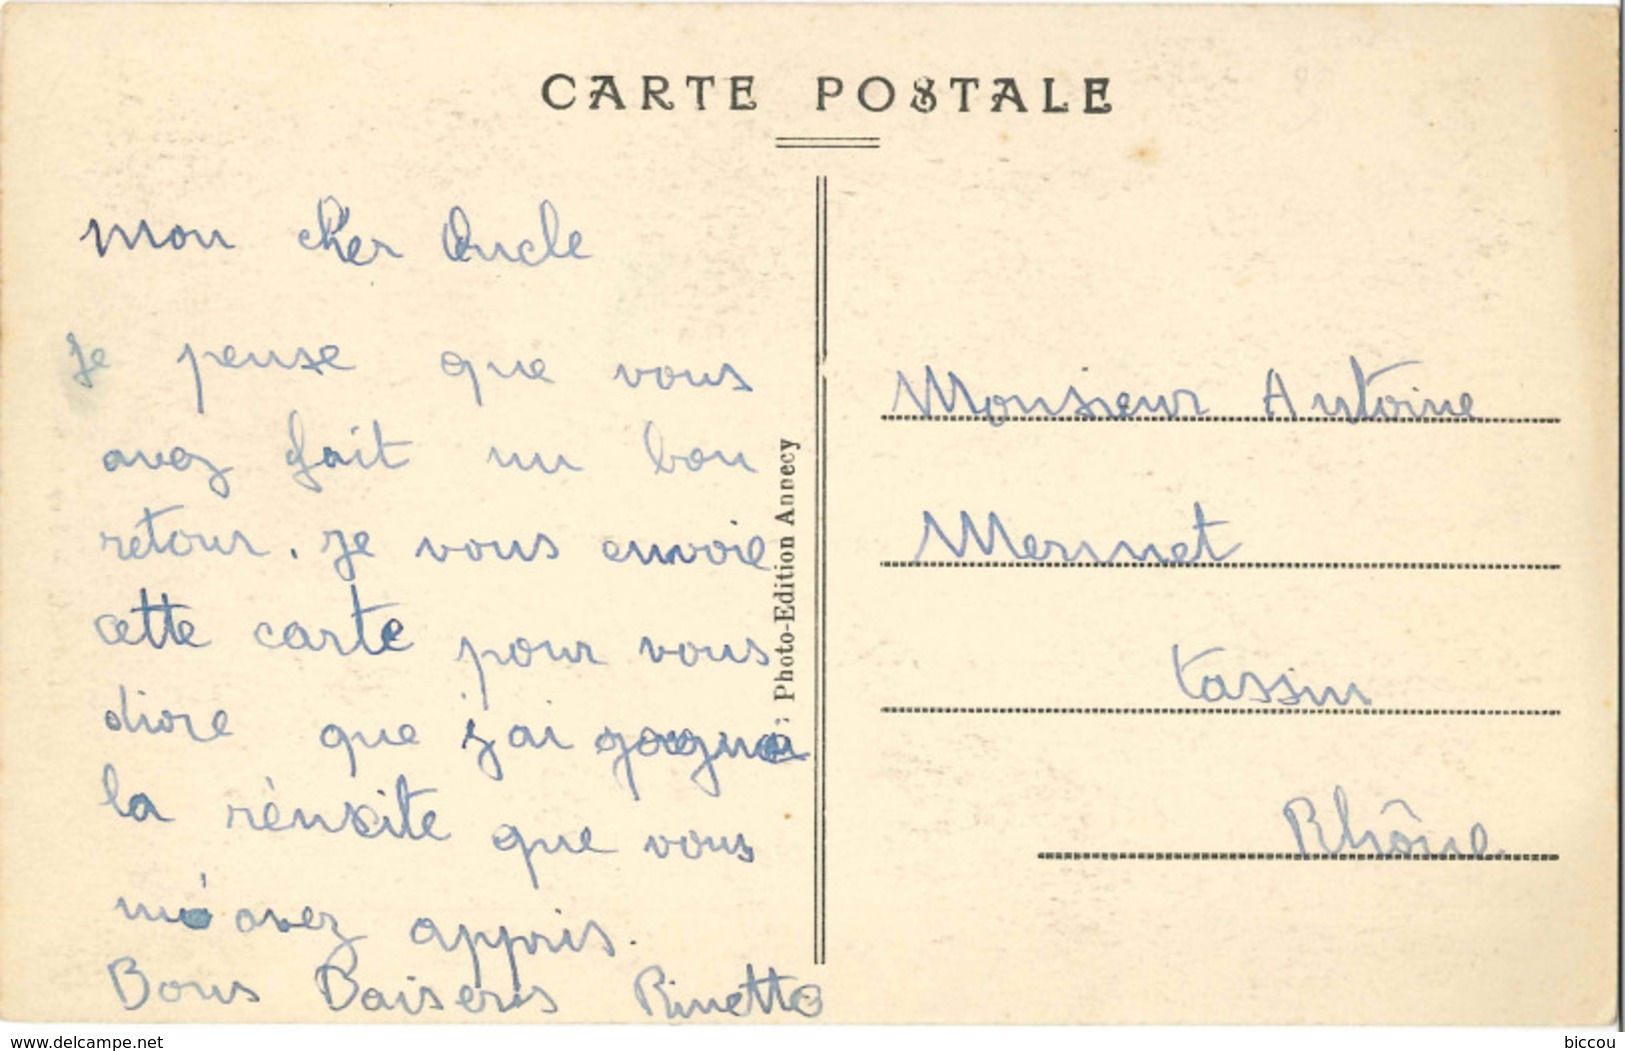 CARTE POSTALE
mon cher Oncle
Je pense que vous
avez fait un bon
retour. je vous envoie
cette carte pour vous
dire que j'ai gagné
la réusite que vous
m'avez appris.
Bons Baisers Rinette
Photo-Edition Annecy
Monsieur Antoine
Mermet
tassin
Rhône
www.delcampe.net
biccou